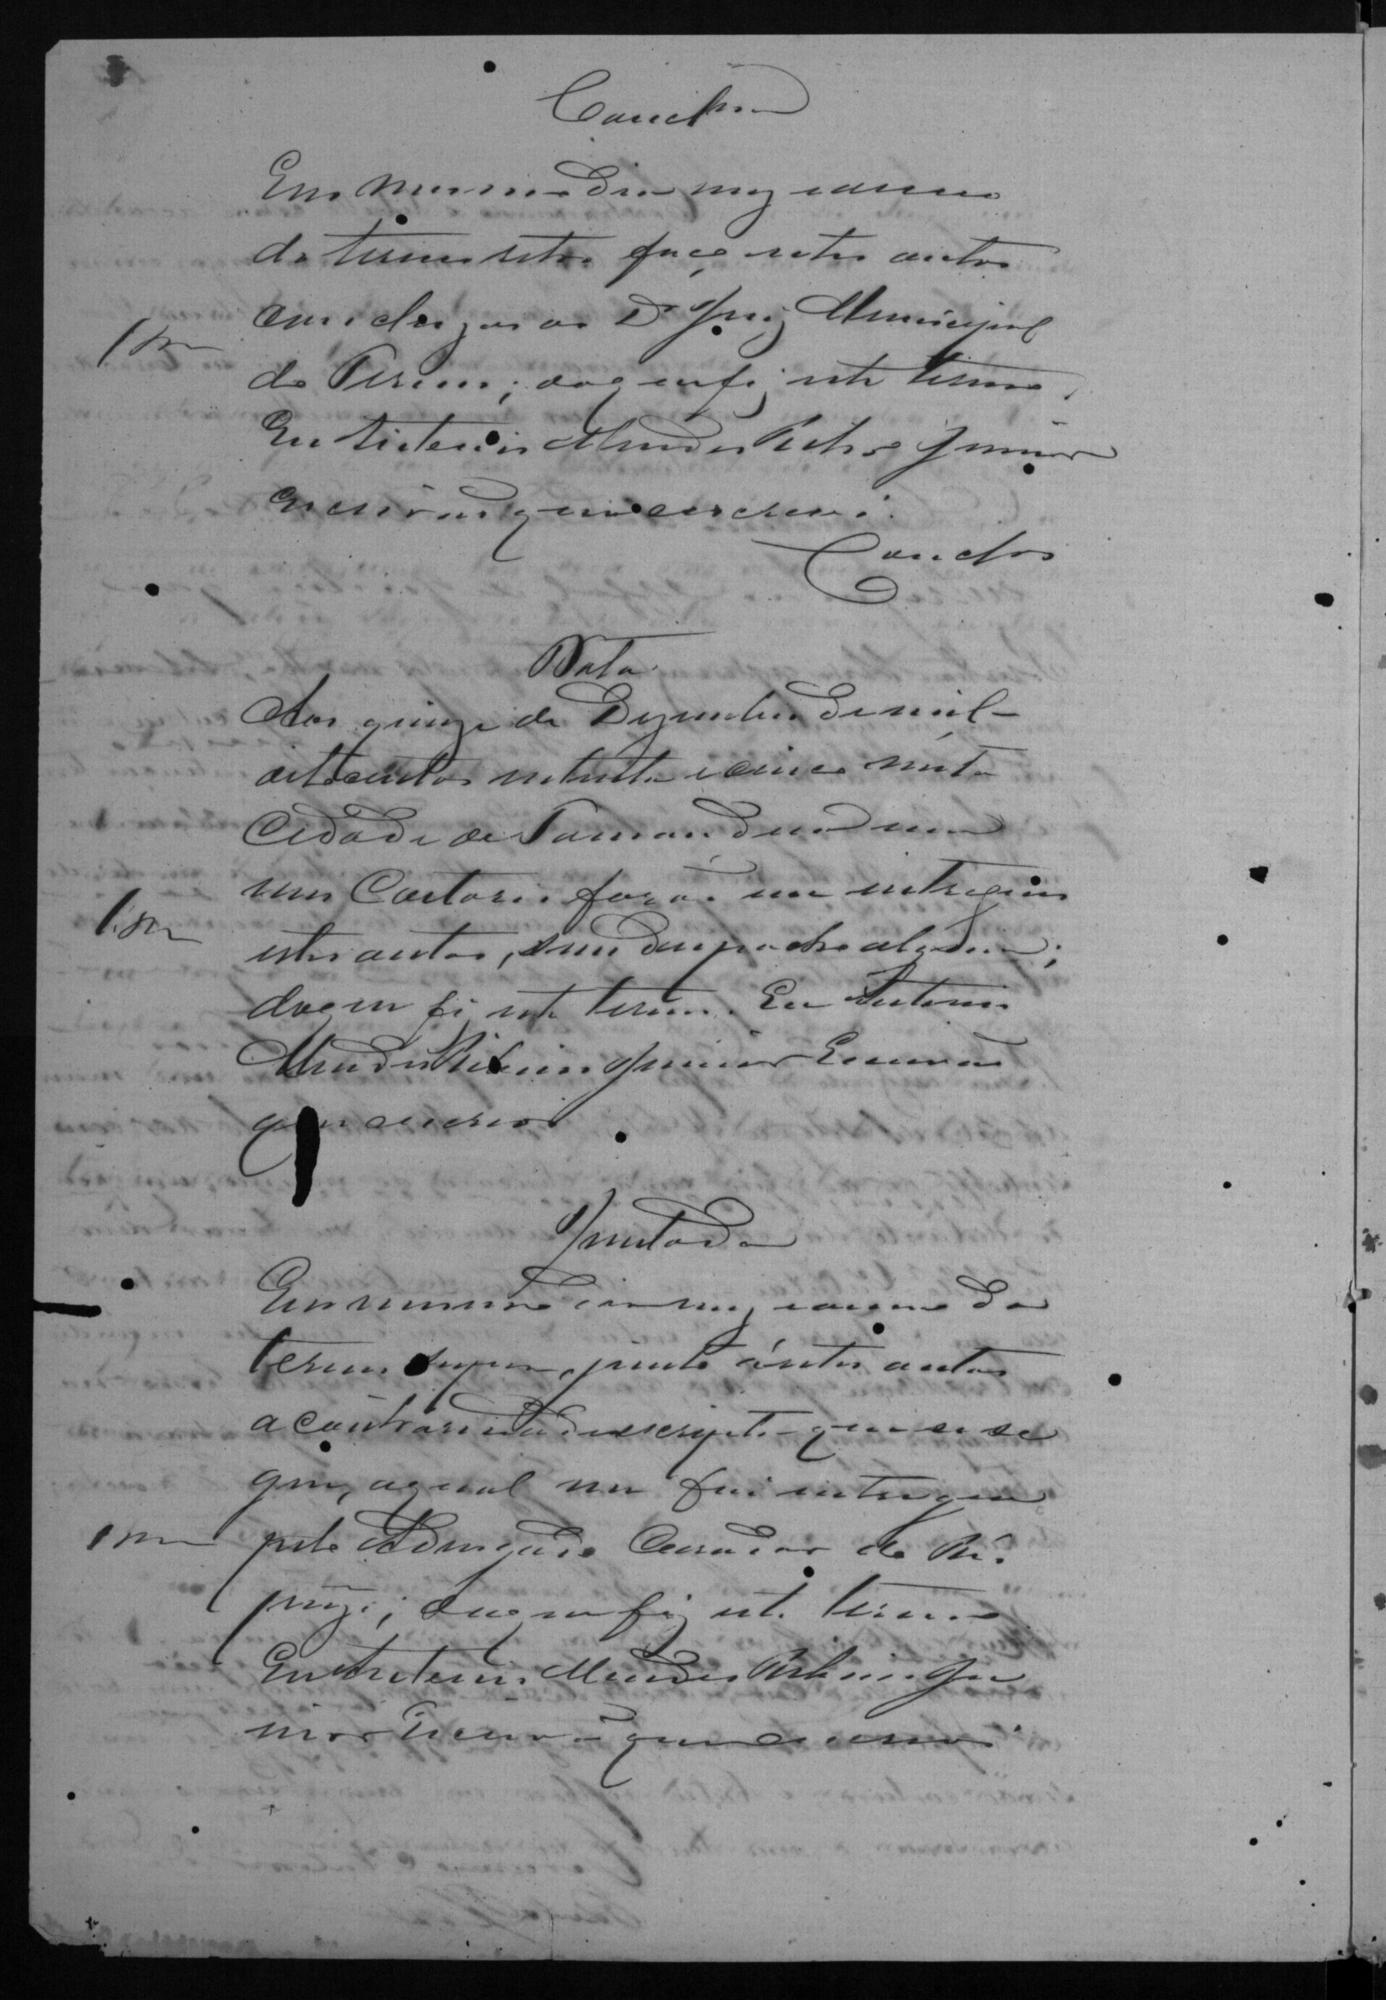 Conclusão
Em o mesmo dia mez e anno
do termo retro faço estes autos
conclusos ao Dr Juiz Municipal
do Termo; do que fiz este termo.
Eu Antonio Mendes Ribeiro Junior
Escrivão que escrevi.
Conclos
Data
Aos quinze de Dezembro de mil
oitocentos setenta e cinco nésta
Cidade de Tamanduá em
meu Cartorio forão me entregues
estes autos, sem despacho algum;
do que fiz este termo. Eu Antonio
Mendes Ribeiro Junior Escrivão
que escrevi
Juntada
Em o mesmo dia mez e anno do
termo supra, junto á estes autos
a contrariedade escripta que se se
gue, a qual me foi entregue
pelo Advogado Curador do Ré.
; do que fiz este termo
Eu Antonio Mendes Ribeiro Ju
nior Escrivão que escrevi